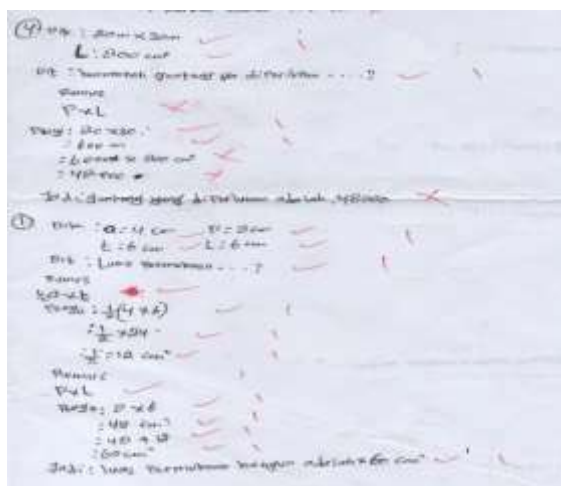 ④ Dik : 20m x 30m
L : 800 cm²
Dit : genteng yg diperlukan . . . . ?
Rumus
P x L
: 20 x 30
: 600 m
: 48000
Jadi : genteng yang diperlukan adalah 48000
① Dik : a = 4 cm P = 8 cm
t = 6 cm L = 6 cm
Dit : Luas Permukaan . . . . ?
Rumus
: ½ (4 x 6)
: ½ x 24
: 12 cm²
Rumus
P x L
: 8 x 6
: 48 cm²
: 48 + 12
: 60 cm²
Jadi : luas Permukaan bangun adalah 60 cm²